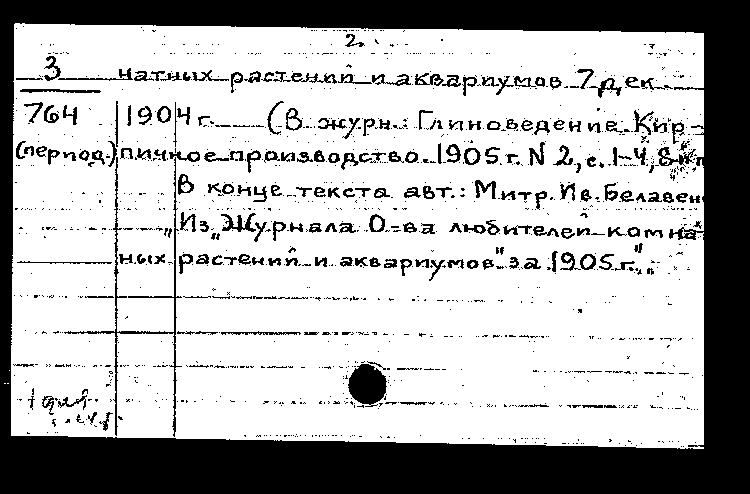 2.
3 натных растений и аквариумов 7 дек.
764 1904 г. (В журн.: Глиноведение. Кир-
(период.) пичное производство. 1905 г. N 2, с. 1-4, 8
В конце текста авт.: Митр. Ив. Белавен
„Из „Журнала О-ва любителей комна
ных растений и аквариумов" за 1905 г.".